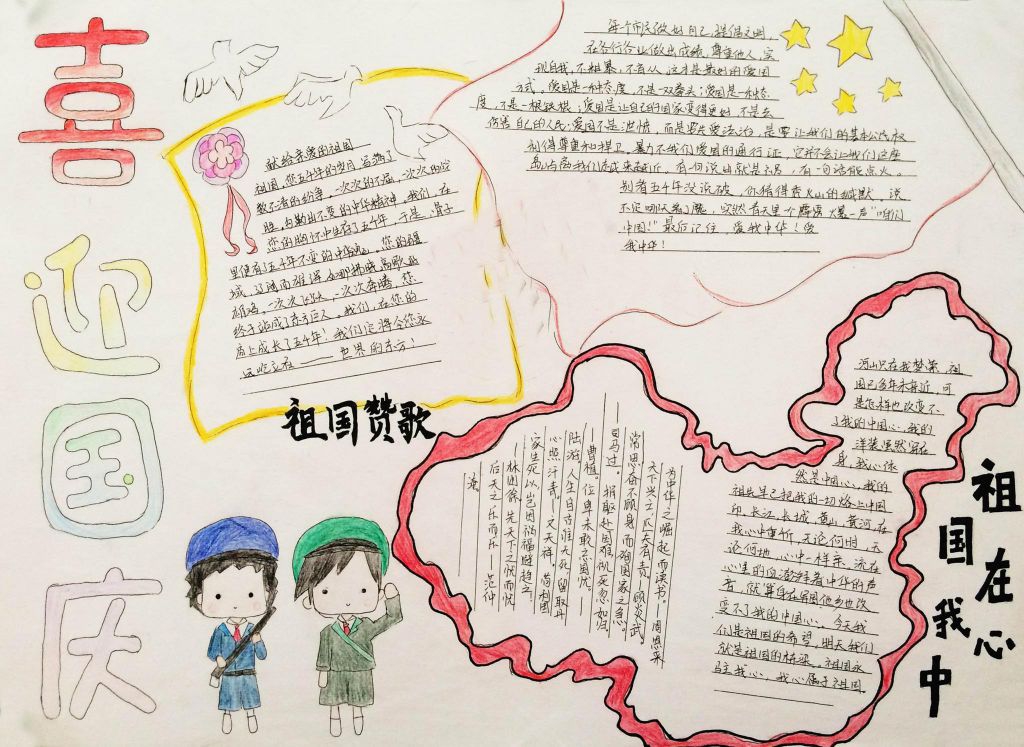 喜迎国庆
献给亲爱的祖国
祖国,您五千年的岁月,容纳了
数不清的纷争,一次次的
胆,勾勒出不变的中华精神。我们,在
您的胸怀中生存了五千年,于是,骨子
里便有了五千年不变的中华魂。您的疆
域,辽阔而雄浑,如那拂晓高歌的
雄鸡,一次次飞跃,一次次奔腾,您
终于站成了东方巨人。我们,在您的
肩上成长了五千年!我们定将令您永
远屹立在——世界的东方!
祖国赞歌
每个市民做好自己,提倡文明,
在各行各业做出成绩,尊重他人,实
现自我,不粗暴,不盲从,这才是最好的爱国
方式。爱国是一种态度,不是一双拳头;爱国是一种态
度,不是一根铁棍;爱国是让自己的国家变得更好,不是去
伤害自己的人民;爱国不是泄愤,而是
别得尊重和捍卫,暴力不是我们爱国的通行证,它并不会让我们
有一句说出就是
别看五千年没说破,你猜得透火山的缄默,说
不定哪天着了魔,突然青天里一个霹雳大暴一声"咱们
中国!"最后记住,爱我中华!
我中华!
为中华之崛起而读书。——周恩来
天下兴亡,匹夫有责。——顾炎武
常思奋不顾身,而殉国家之急。
——司马迁。捐躯赴国难,视死忽如归。
——曹植。位卑未敢忘国忧。——
陆游。人生自古谁无死,留取丹
心照汗青。——文天祥。苟利国
家生死以,岂因祸福避趋之。
——林则徐。先天下之忧而忧,
后天下之乐而乐。——范仲
淹
河山只在我梦萦,祖
国已多年未亲近,可
是怎样也改变不
了我的中国心。我的
洋装虽然穿在
身,我心依
然是中国心,我的
祖先早已把我的一切烙上中国
印,长江,长城,黄山,黄河,在
我心中重千斤,无论何时,无
论何地,心中一样亲,流在
心里的血,澎湃着中华的声
音,就算身在异国他乡也改
变不了我的中国心。今天我
们是祖国的希望,明天我们
就是祖国的栋梁。祖国永
我心属于祖国。
祖国在我心中